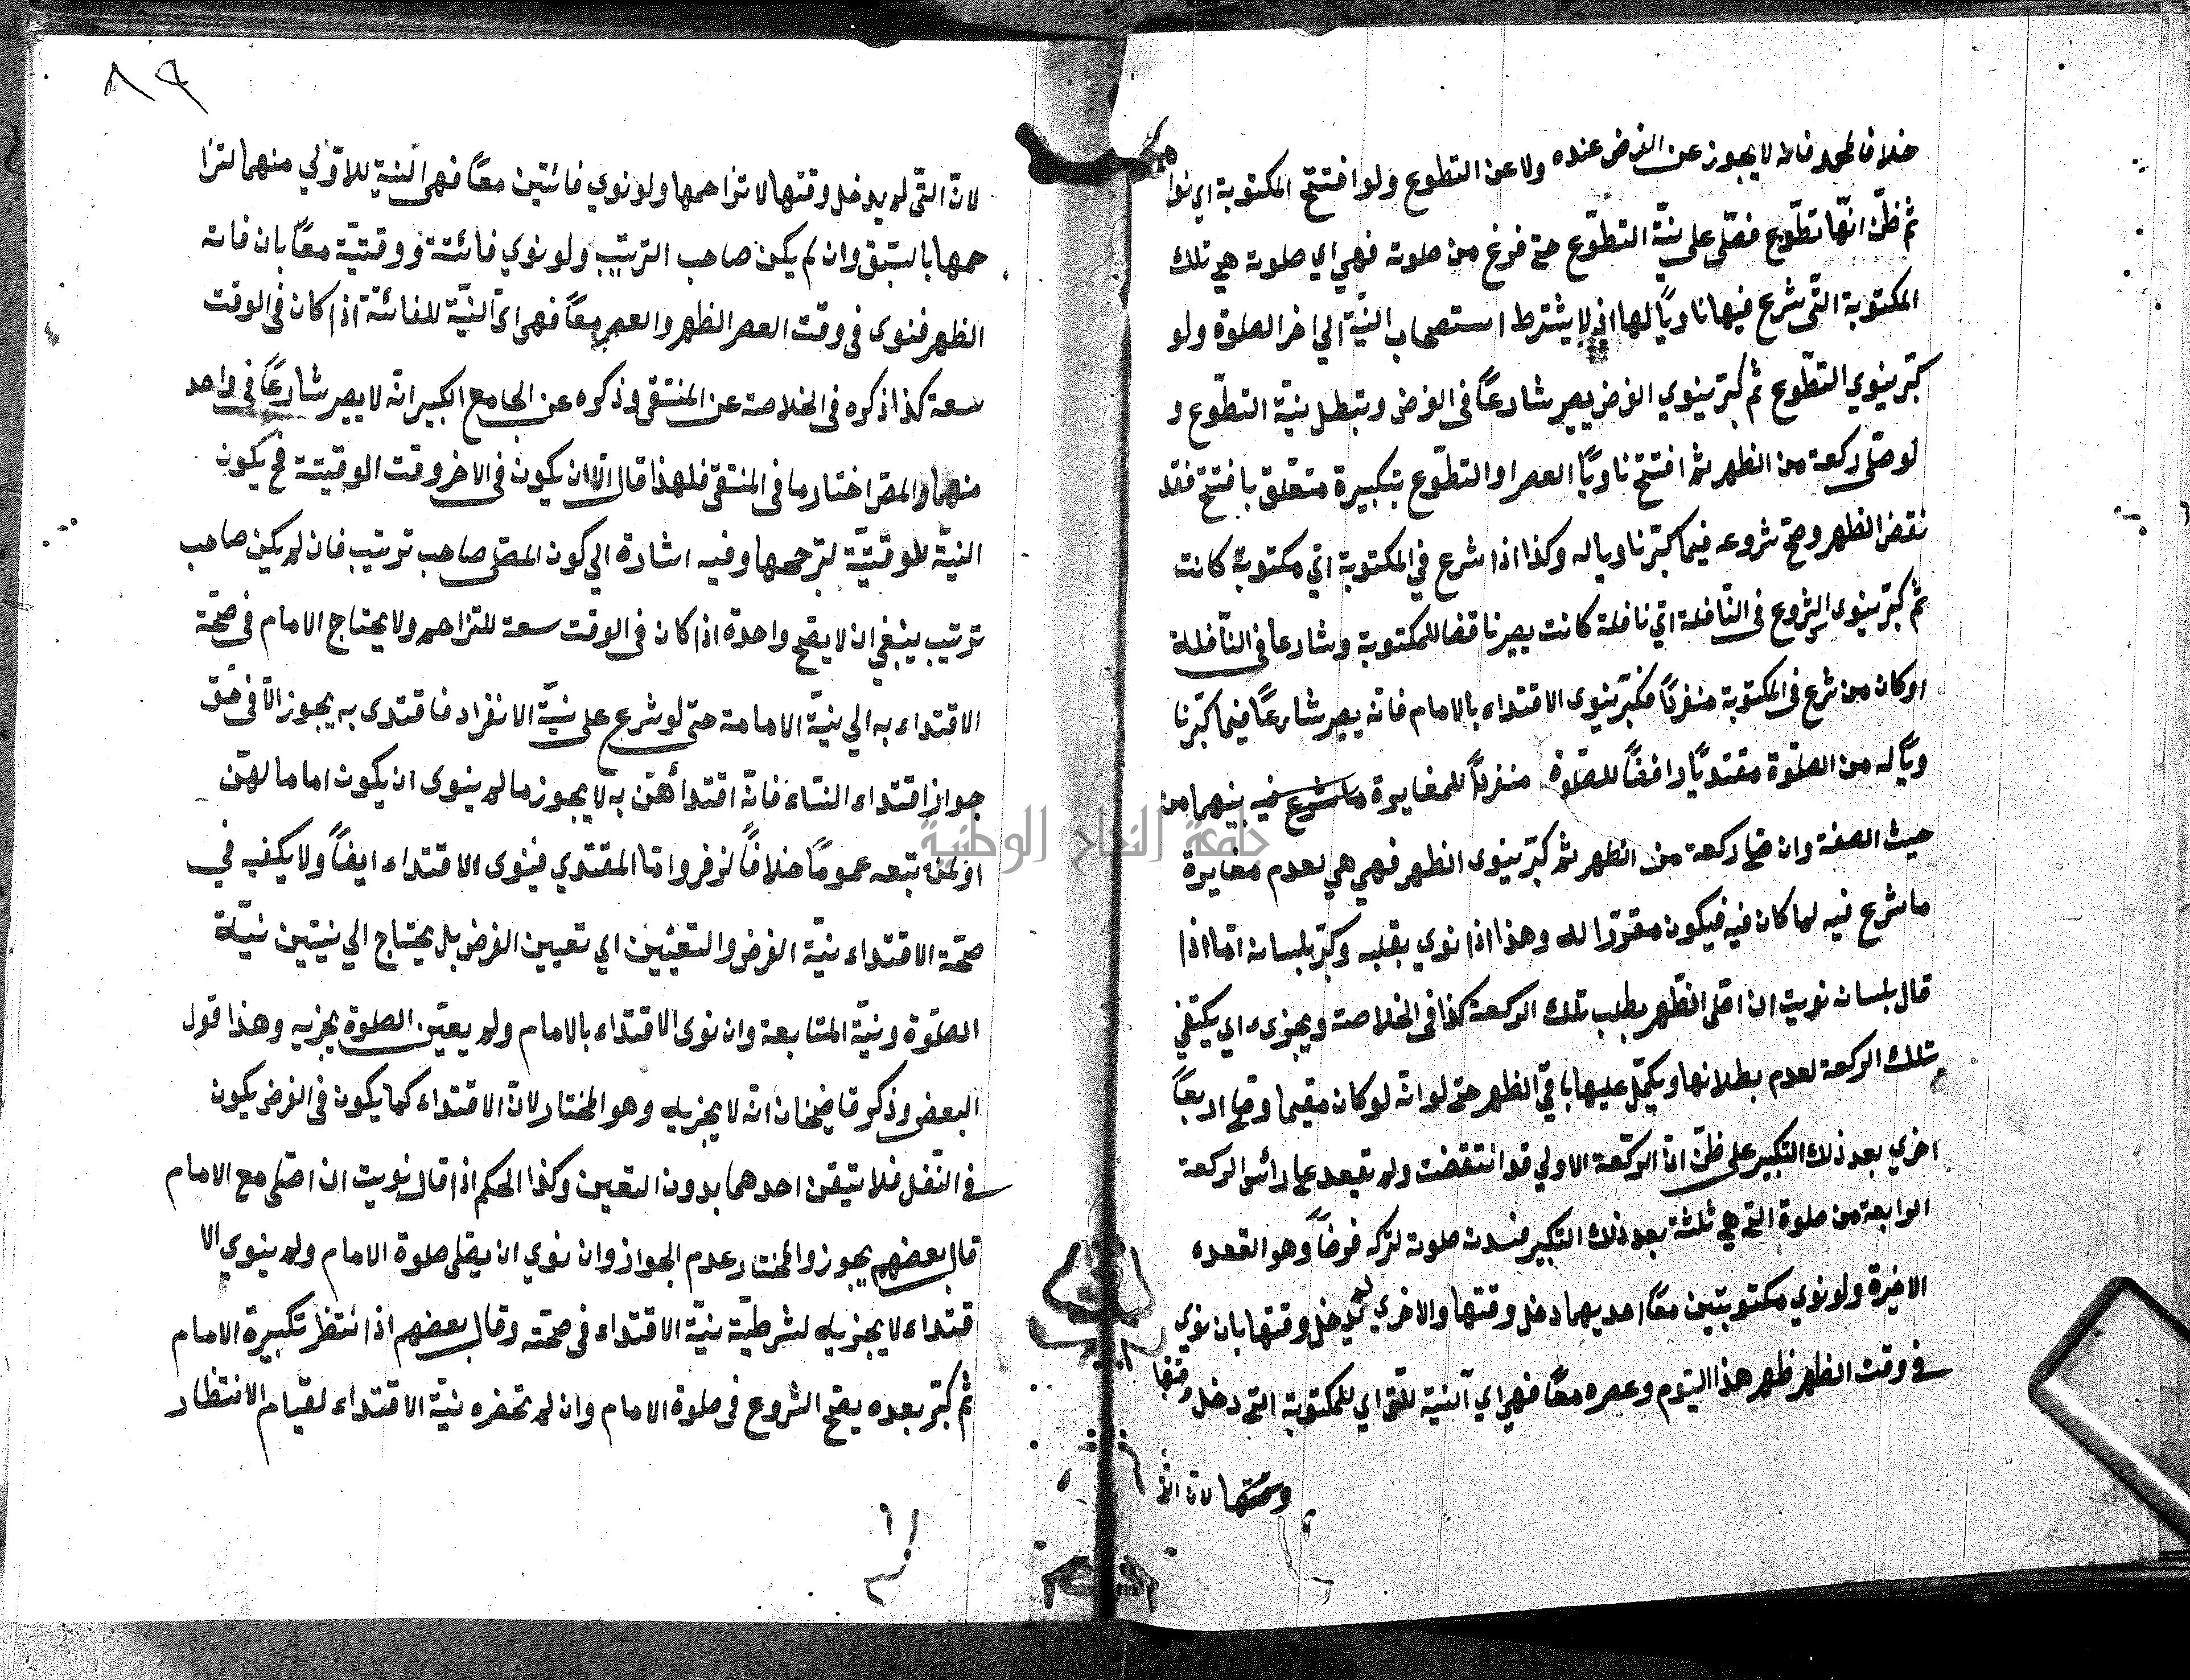 خلافا لمحمد فانه لا يجوز عن الفرض عنده ولا عن التطوع ولو افتتح المكتوبة اي نوا
ثم ظنّ انّها تطوّع فصّلى على نيّة التطوّع حتى فرغ من صلوته فهي اي صلوته هي تلك
المكتوبة التّى شرع فيها ناويًا لها اذ لا يشترط استصحاب النيّة الي اخر الصلوة ولو
كبّر ينوي التطوّع ثم كبّر ينوي الفرض يصير شارعًا فى الفرض وتبطل بنيّة التطوّع و
لو صلّى ركعة من الظهر ثم افتتح ناويًا العصر او التطوّع بتكبيرة متعلق بافتتح فقد
نقض الظهر وصح شروعه فيما كبّر ناويا له وكذا اذا شرع في المكتوبة اي مكتوبة كانت
ثم كبّر ينوى الشروع فى النّافلة ايّ نافلة كانت يصير ناقضا للمكتوبة وشارعا فى النّافلة
او كان من شرع فى المكتوبة منفردًا فكبّر ينوى الاقتداء بالامام فانه يصير شارعًا فيما كبّر نا
ويًا له من الصّلوة مقتديًا رافضًا للصّلوة منفردًا للمغايرة ما شرع فيه بينهما من
حيث الصفة وان صلى ركعة من الظهر ثم كبّر ينوى الظهر فهي هي لعدم مغايرة
ما شرع فيه لما كان فيه فيكون مقررا له وهذا اذا نوي بقلبه وكبّر بلسانه امّا اذا
قال بلسانه نويت ان اصلى الظّهر بطلب تلك الركعة كذا فى الخلاصة ويجزىء اي يكتفي
بتلك الركعة لعدم بطلانها ويكمّل عليها باقي الظهر حتى لو انّه لو كان مقيما وصلى اربعًا
اخري بعد ذلك التكبير على ظنّ انّ الرّكعة الاولي قد انتقضت ولم يقعد على رائس الركعة
الرابعة من صلوة التي هي ثلثة بعد ذلك التكبير فسدت صلوته لتركه فرضًا وهو القعده
الاخيرة ولو نوي مكتوبتين معًا احديهما دخل وقتها والاخري لم يدخل وقتها بان نوي
في وقت الظهر ظهر هذا اليوم وعصره معًا فهي اي النية للّتى اي للمكتوبة التي دخل وقتها
وقتها لان التي
٨٩
لانّ التّى لم يدخل وقتها لا تزاحمها ولو نوي فائتتين معًا فهى النية للاوّلي منهما لترا
حمها بالسّبق وان لم يكن صاحب الترتيب ولو نوي فائتة ووقتيّة معًا بان فاته
الظهر فنوى فى وقت العصر الظهر والعصر معًا فهى اى النيّة للفائتة اذا كان فى الوقت
سعة كذا ذكره فى الخلاصة عن المنتقى وذكره عن الجامع الكبير انّه لا يصير شارعًا فى واحد
منهما والمص اختار ما فى المنتقى فلهذا قال الّا ان يكون فى الاخر وقت الوقيتة فح يكون
النيّة للوقتيّة لترجحها وفيه اشارة الي كون المصّلى صاحب ترتيب فان لم يكن صاحب
ترتيب ينبغي ان لا يصح واحدة اذا كان فى الوقت سعة للتزاحم ولا يحتاج الامام فى صحّة
الاقتداء به الي نيّة الامامة حتى لو شرع على نيّة الانفراد فاقتدى به يجوز الّا فى حّق
جواز اقتداء النساء فانّ اقتدأهنّ به لا يجوز ما لم ينوى ان يكون اماما لهنّ
او لمن تبعه عمومًا خلافًا لزفر وامّا المقتدي فينوى الاقتداء ايضًا ولا يكفيه في
صحّة الاقتداء نيّة الفرض والتعيين اي تعيين الفرض بل يحتاج الي نيتين نيّة
الصلّوة ونيّة المتابعة وان نوى الاقتداء بالامام ولم يعيّن الصلوة يجزيه وهذا قول
البعض وذكر قاضيخان انّه لا يجزيه وهو المختار لانّ الاقتداء كما يكون فى الفرض يكون
في النّفل فلا يتيقن احدهما بدون التعين وكذا الحكم اذا قال نويت ان اصّلى مع الامام
قال بعضهم يجوز والمختار عدم الجواز وان نوي ان يصّلى صلوة الامام ولم ينوي الا
قتداء لا يجزيه لشرطيّة نيّة الاقتداء فى صحّته وقال بعضهم اذا انتظر تكبيرة الامام
ثم كبّر بعده يصح الشروع فى صلوة الامام وان لم تحضره نيّة الاقتداء لقيام الانتظار
جامعة النجاح الوطنية